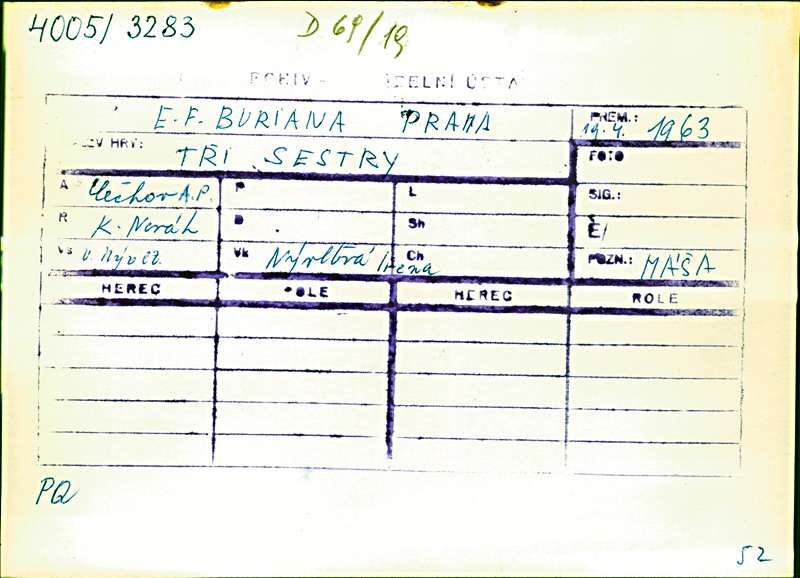 4005/ 3283 D 69/19
E.F. BURIANA PRAHA PREM.: 19.4. 1963
HRY: TŘI SESTRY FOTO
A Čechov A.P. P L SIG.:
R K. Novák D Sh Č/
Vs V. Nývlt Vk Nývltová Irena Ch POZN.: MÁŠA
HEREC ROLE HEREC ROLE
PQ
52